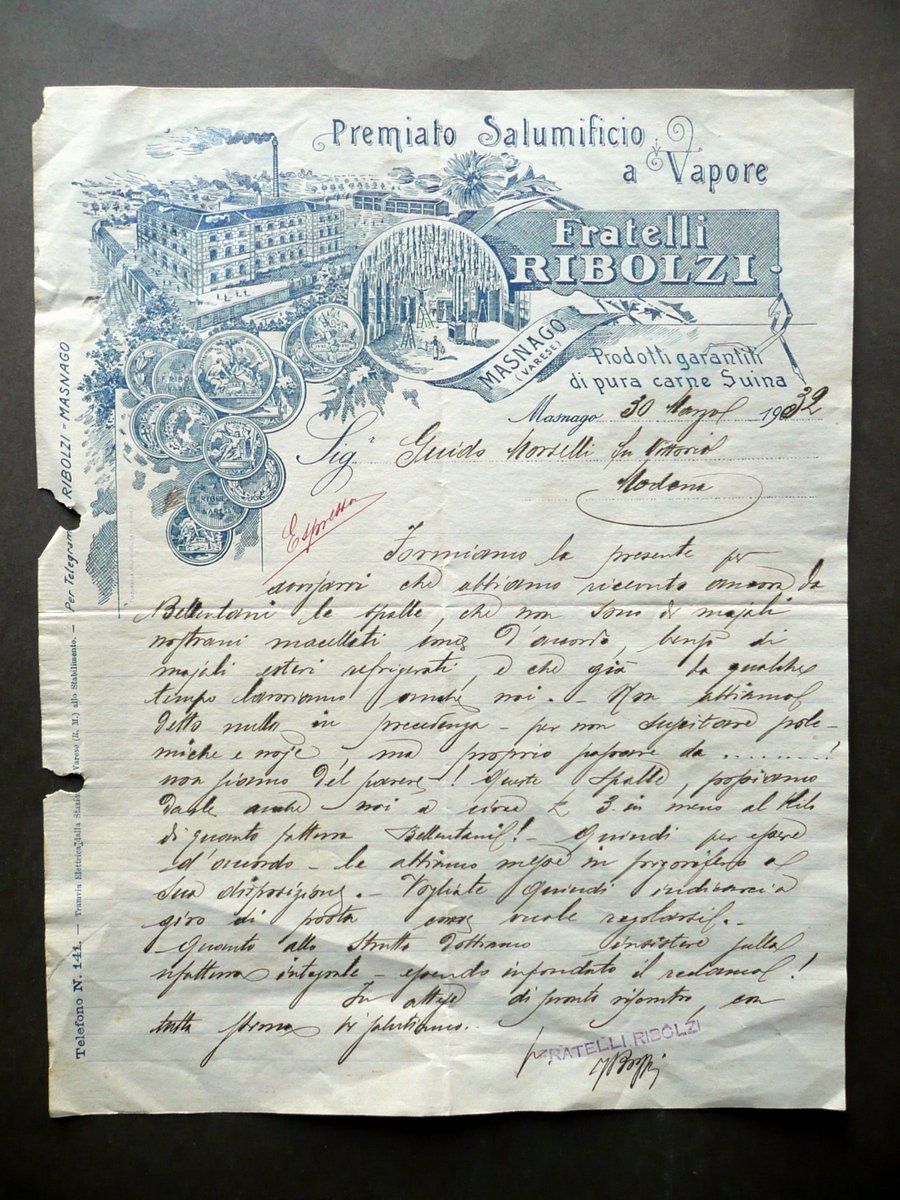 Premiato Salumificio
a Vapore
Fratelli
RIBOLZI
MASNAGO
(VARESE)
Prodotti garantiti
di pura carne Suina
Masnago 30 Marzo 1932
Sig. Guido Morselli fu Vittorio
Modena
Espresso
Formiamo la presente per
che abbiamo ricevuto ancora da
Bellentani le spalle, che non sono di majali
nostrani macellati d'accordo, bensì di
majali esteri refrigerati, e che già da qualche
tempo lavoriamo anche noi. - Non abbiamo
detto nulla in precedenza - per non suscitare pole-
miche e noje, ma proprio passare da ..........!
non siamo del parere! Queste spalle, possiamo
darle anche noi a circa £ 3 in meno al Kilo
di quanto fattura Bellentani! - Quindi per essere
d'accordo - le abbiamo messe in frigorifero a
Sua disposizione. - Vogliate quindi indicarci a
giro di posta come regolarsi. -
Quanto allo Strutto dobbiamo insistere sulla
fattura integrale - essendo infondato il reclamo!
In attesa di pronto riscontro, con
tutta stima Vi salutiamo..
p. FRATELLI RIBOLZI
Telefono N. 141. — Tramvia Elettrica dalla Staz. Varese (R. M.) allo Stabilimento. — Per Telegrammi RIBOLZI - MASNAGO